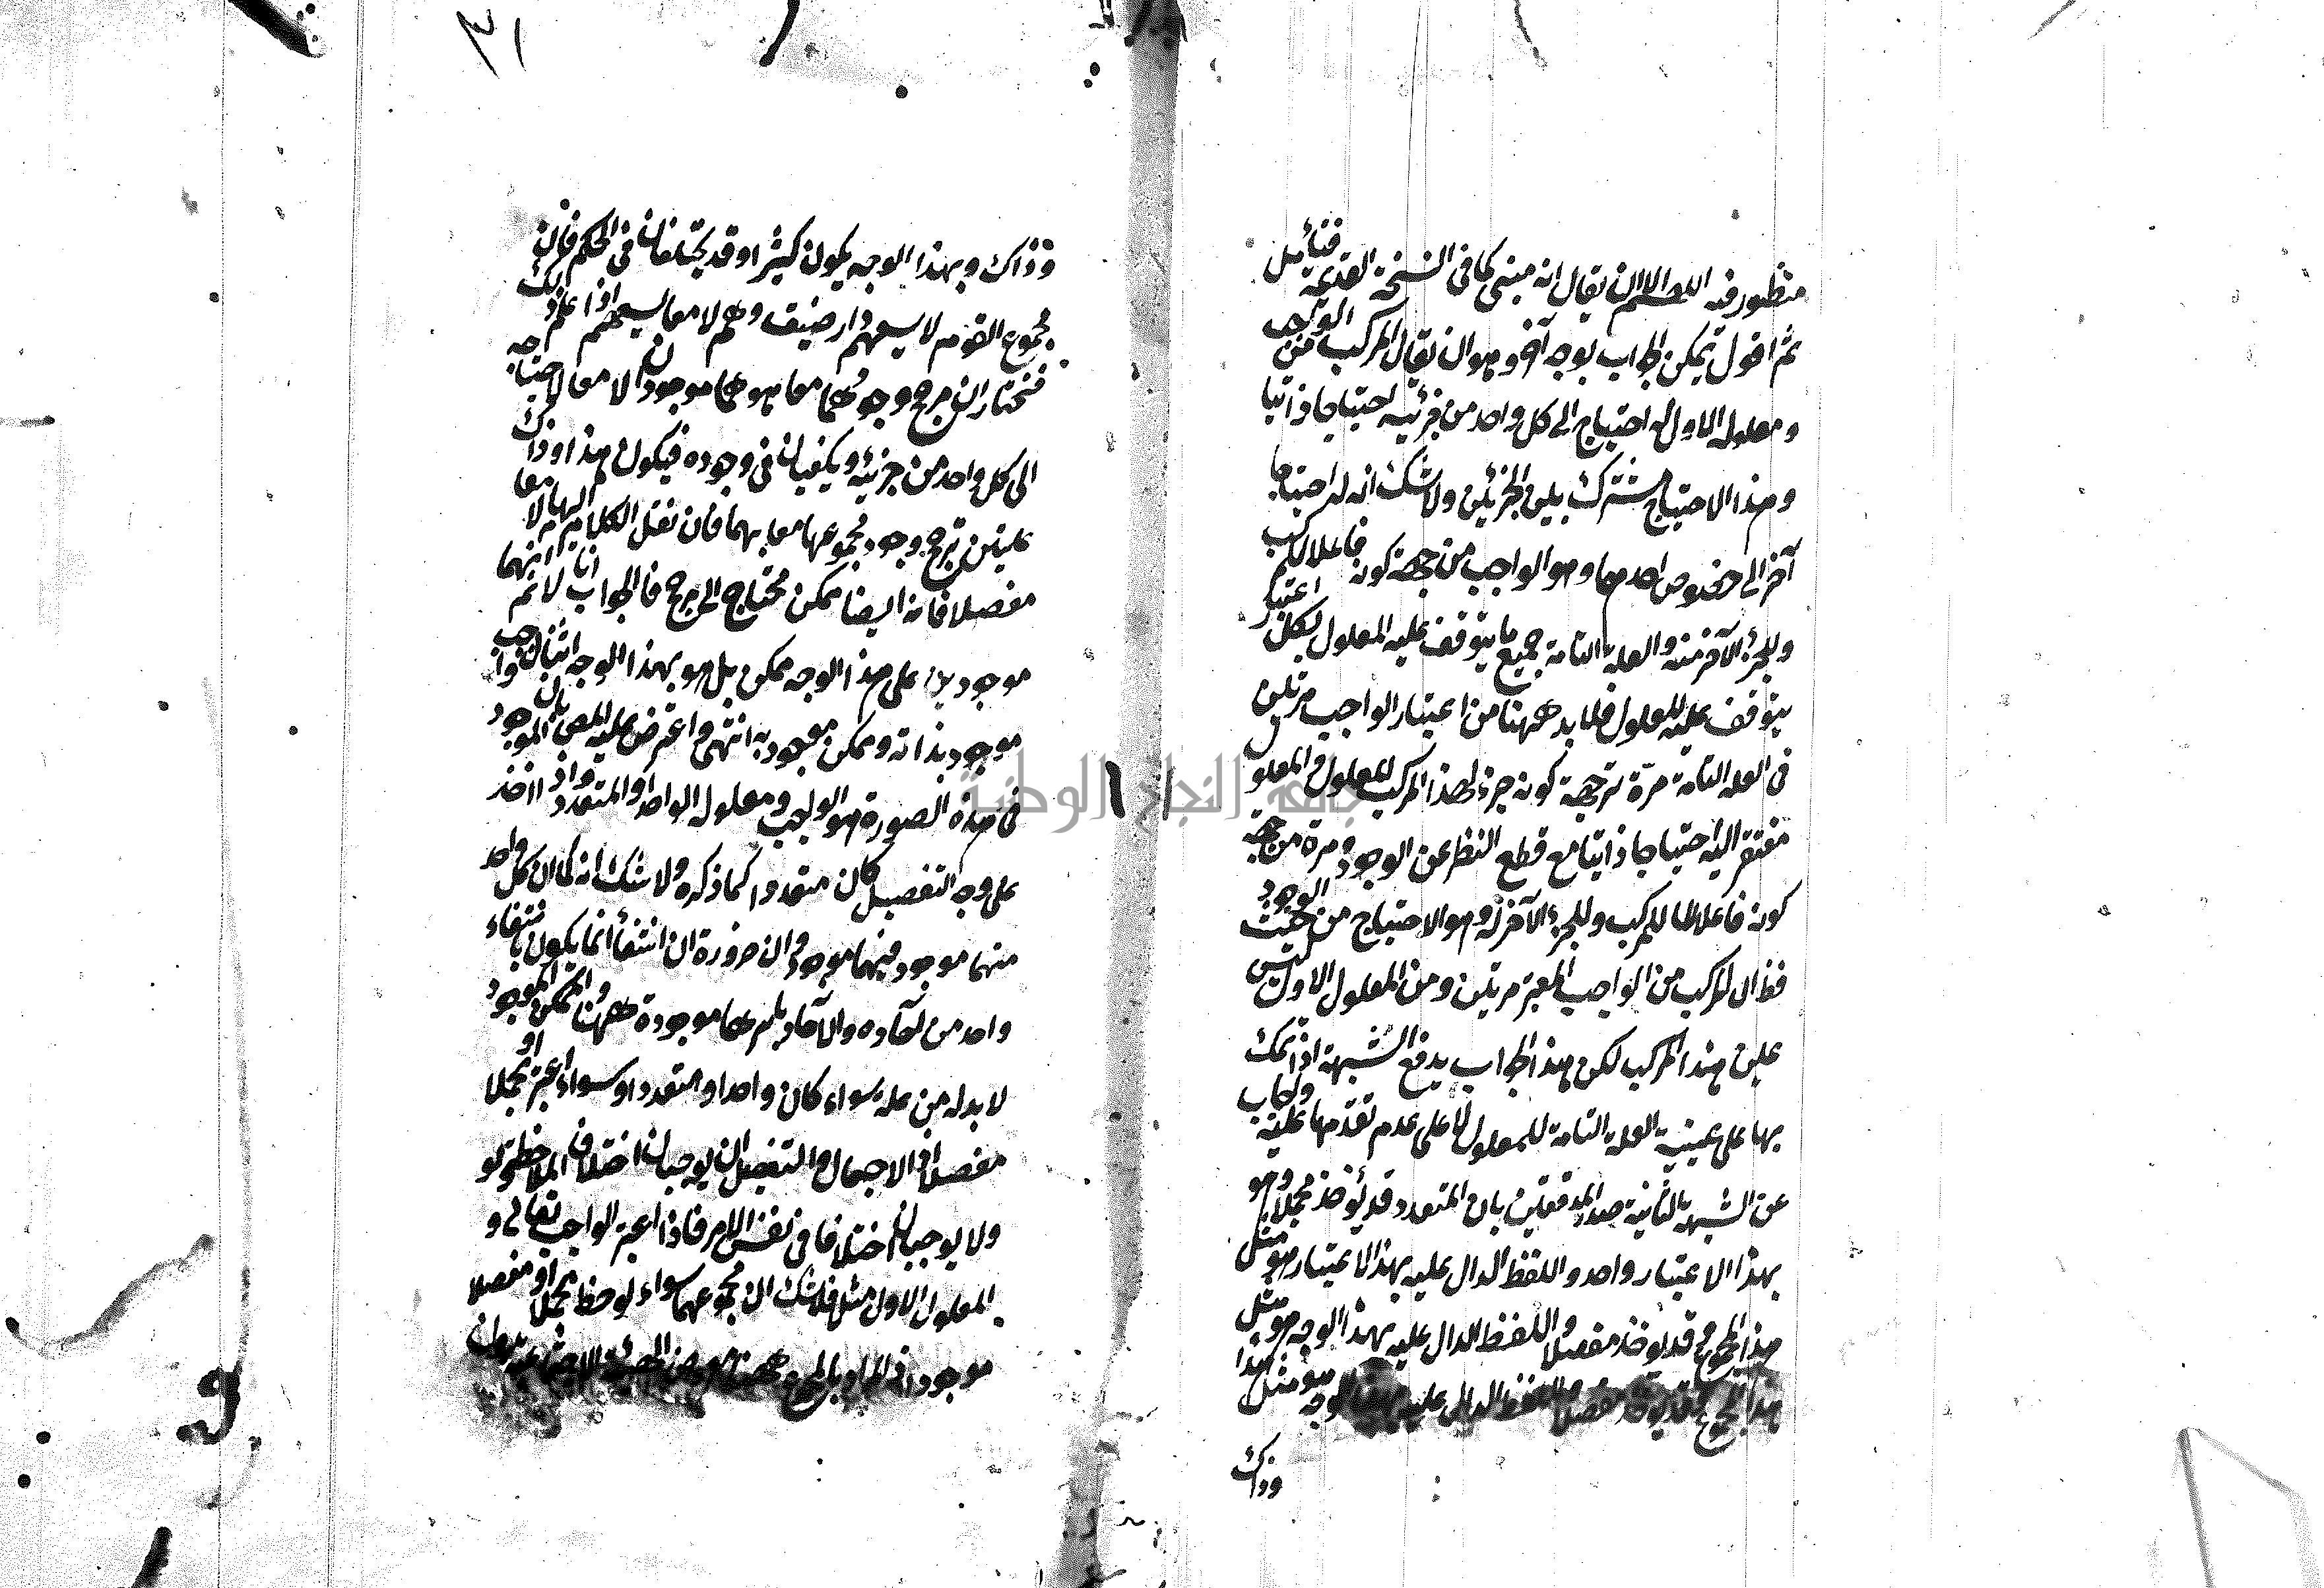 منظور فيه اللهم الا ان يقال انه مبنى كما فى النسخة القديمة فتأمل
ثم اقول يمكن الجواب بوجه آخر وهو ان يقال المركب من الواجب
ومعلوله الاول له احتياج الى كل واحد من جزئيه احتياجا ذاتيا
وهذا الاحتياج مشترك بين الجزئين ولا شك انه له احتياجا
آخر الى خصوص احدهما وهو الواجب من جهة كونه فاعلا للمركب
وللجزء الآخر منه والعلة التامة جميع ما يتوقف عليه المعلول بكل اعتبار
يتوقف عليه المعلول فلا بد ههنا من اعتبار الواجب مرتين
فى العلة التامة مرة من جهة كونه جزء لهذا المركب المعلول والمعلول
مفتقر اليه احتياجا ذاتيا مع قطع النظر عن الوجود ومرة من جهة
كونه فاعلا للمركب وللجزء الآخر له وهو الاحتياج من حيث الوجود
فظ ان المركب من الواجب المعتبر مرتين ومن المعلول الاول ليس
عين هذا المركب لكن هذا الجواب يدفع الشبهة اذا تمسك
بها على عينية العلة التامة للمعلول لا على عدم تقدمها عليه واجاب
عن الشبهة الثانية صدر المدققين بان المتعدد قد يؤخذ مجملا وهو
بهذا الاعتبار واحد واللفظ الدال عليه بهذا الاعتبار هو مثل
هذا المجموع وقد يؤخذ مفصلا واللفظ الدال عليه بهذا الوجه هو مثل
هذا المجموع وقد يؤخذ مفصلا واللفظ الدال عليه بهذا الوجه هو مثل هذا
وذاك
وذاك وبهذا الوجه يكون كثيرا وقد يختلفان فى الحكم فان
مجموع القوم لا يسعهم دار ضيق وهم لا معا يسعهم اذا علم ذلك
فنختار ان مرجح وجودهما معا هو هما موجودان لا معا لاحتياجه
الى كل واحد من جزئيه ويكفيان فى وجوده فيكون هذا وذاك
علتين ترجح وجود مجموعهما معا بهما فان نقل الكلام اليهما لا معا
مفصلا فانه ايضا ممكن محتاج الى مرجح فالجواب انا لا نم انهما
موجودين على هذا الوجه ممكن بل هو بهذا الوجه اثنان واجب
موجود بذاته وممكن موجود به انتهى واعترض عليه البعض بان الموجود
فى هذه الصورة هو الواجب ومعلوله الواحد او المتعدد واذا اخذ
على وجه التفصيل كان متعددا كما ذكره ولا شك انه كان كل واحد
منهما موجود فهما موجودان ضرورة ان انتفاء انما يكون بانتفاء
واحد من آحاده والآحاد باسرها موجودة ههنا والممكن الموجود
لا بد له من علة سواء كان واحدا او متعددا وسواء اعتبر مجملا او
مفصلا اذ الاجمال والتفصيل ان يوجبان اختلاف الملاحظة
ولا يوجبان اختلافا فى نفس الامر فاذا اعتبر الواجب تعالى و
المعلول الاول مثلا فلا شك ان مجموعهما سواء لوحظ مجملا او مفصلا
موجود اذ المراد بالمجموع ههنا معروض الهيئة الاجتماعية بدون